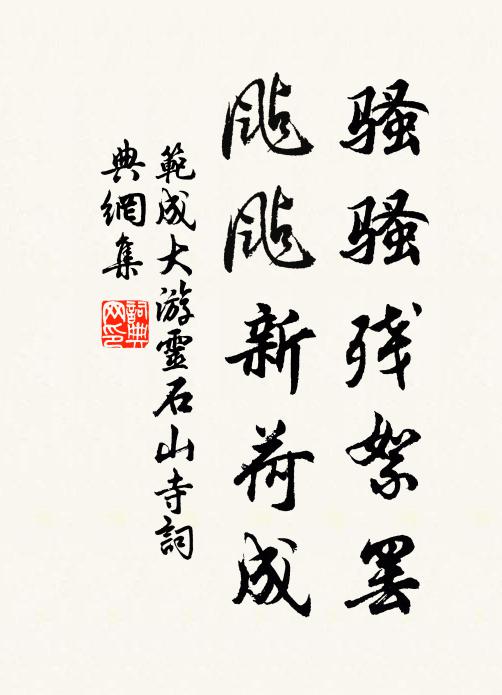 骚骚残絮罢
飐飐新荷成
範成大游靈石山寺詞
典網集
詞典
网印